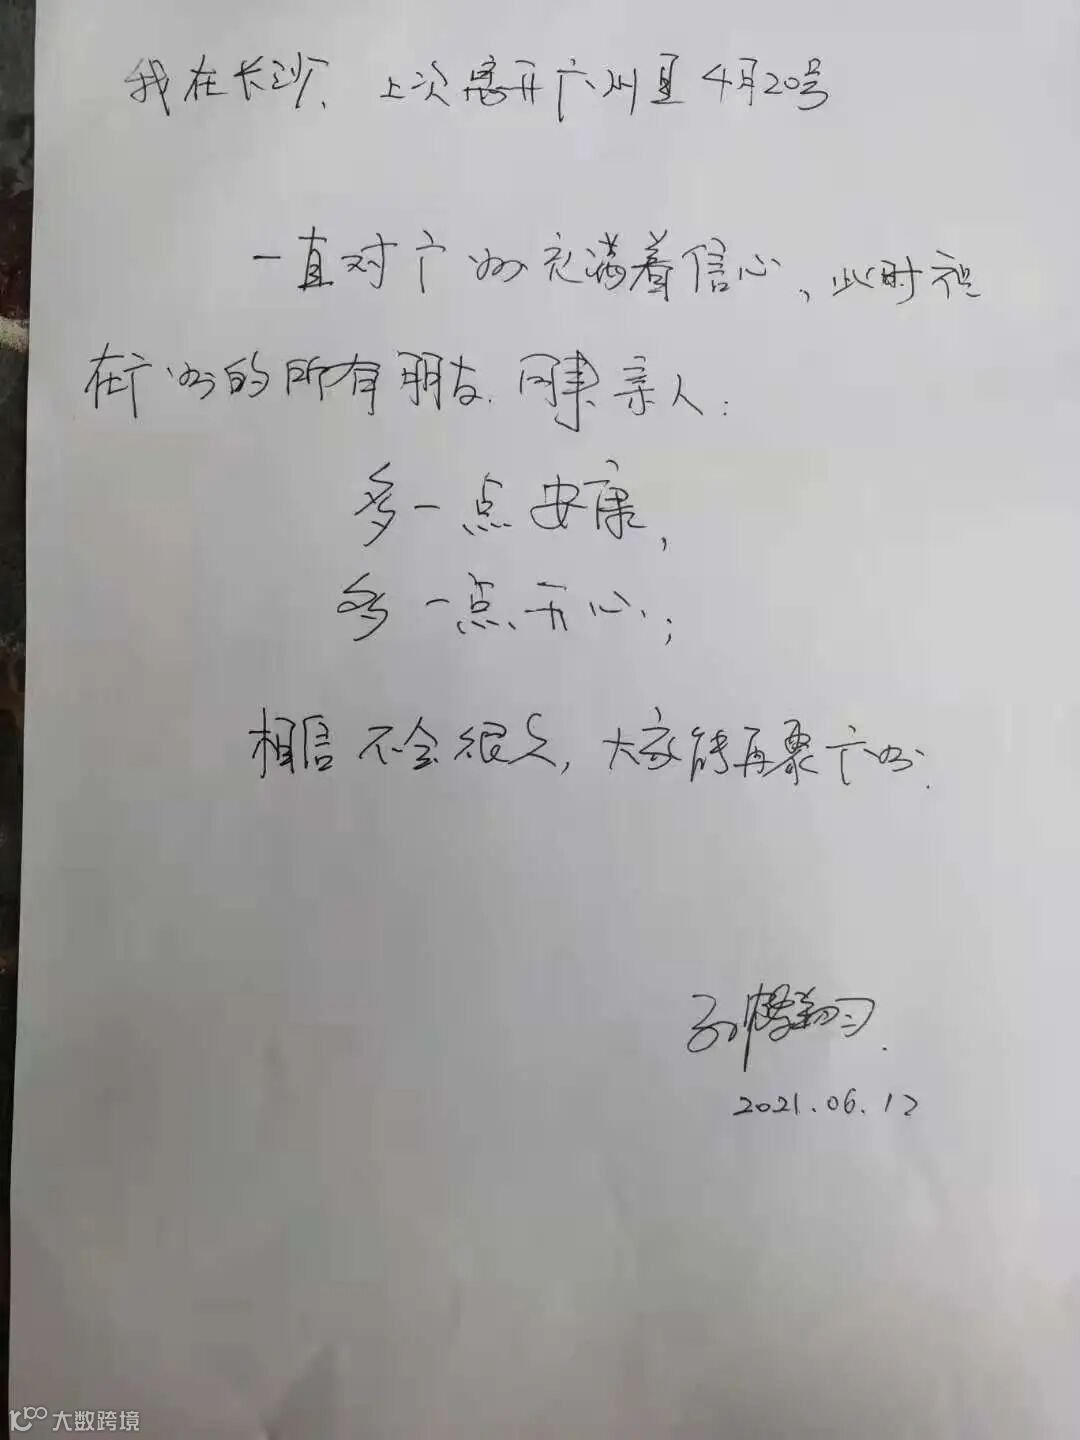 我在长沙、上次离开广州是4月20号
一直对广州充满着信心、此时祝
在广州的所有朋友、同事、亲人：
多一点安康，
多一点开心；
相信不会很久，大家能再聚广州.
孙
2021.06.12
大数跨境